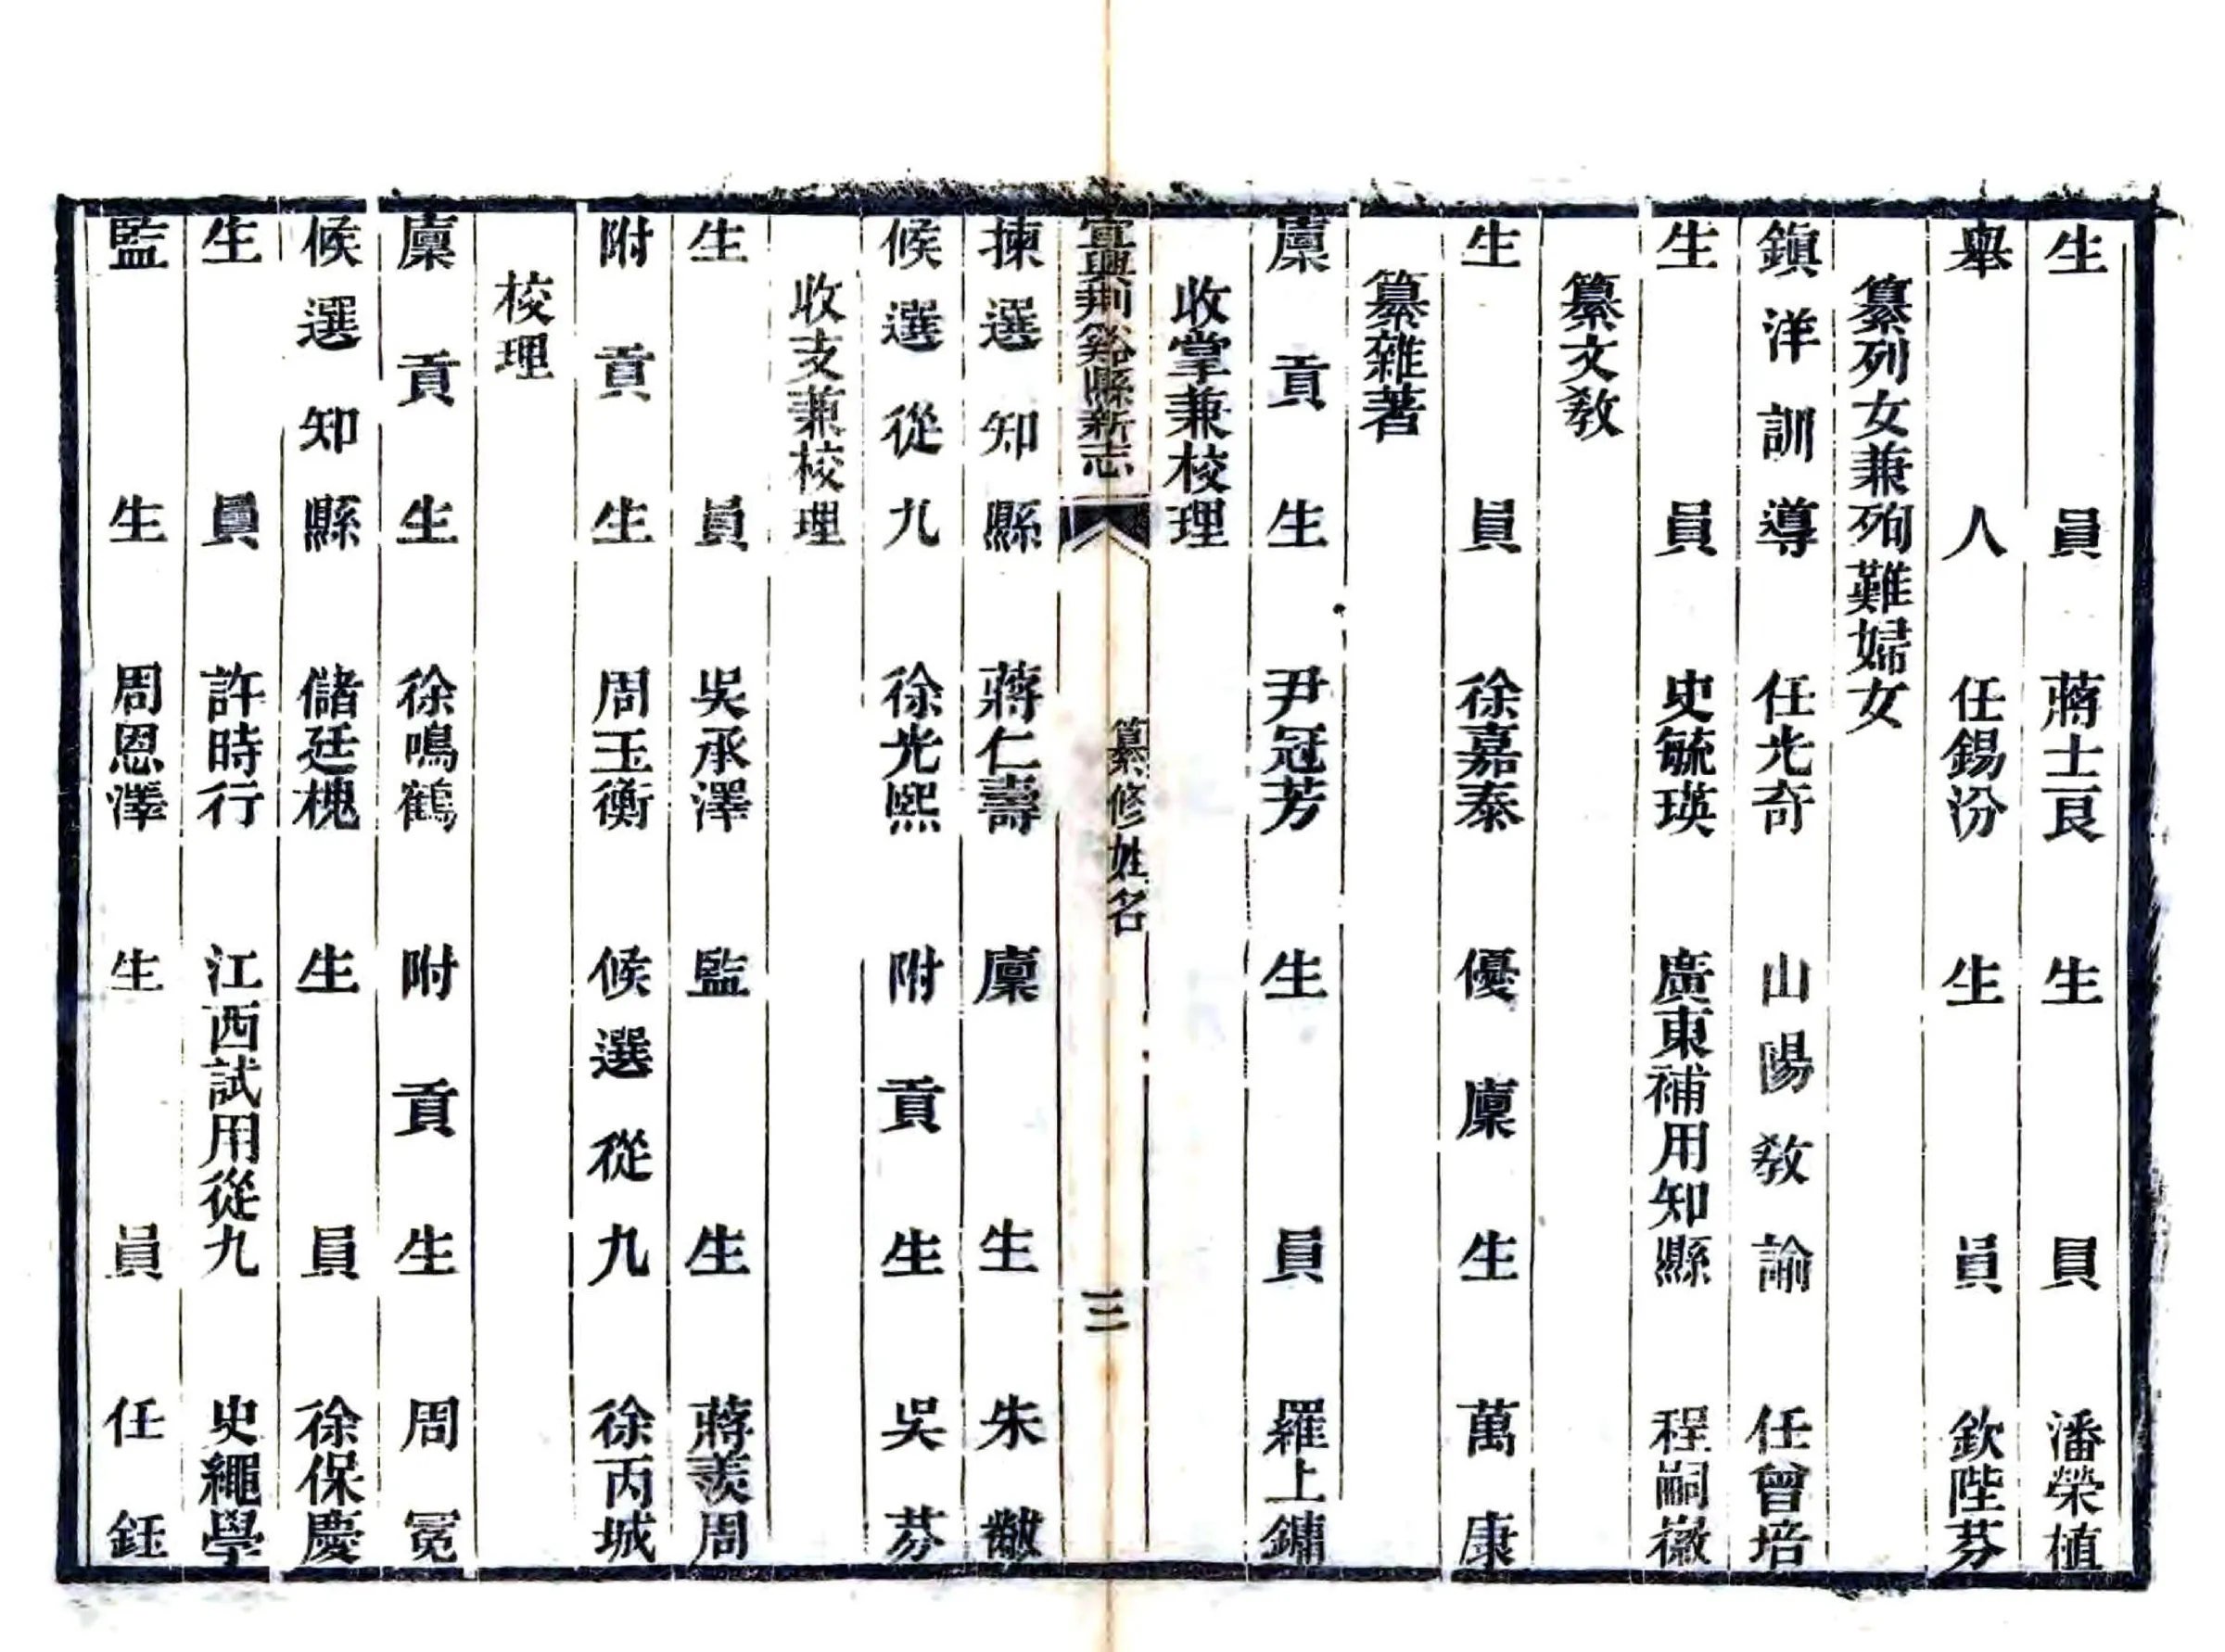 生員　蔣士良　生員　潘榮植
舉人　任錫汾　生員　欽陛芬
纂列女兼殉難婦女
鎮洋訓導　任光奇　山陽教諭　任曾培
生員　史毓瑛　廣東補用知縣　程嗣徽
纂文教
生員　徐嘉泰　優廩生　萬康
纂雜著
廩貢生　尹冠芳　生員　羅上鏞
收掌兼校理
宜興荆谿縣新志　纂修姓名　三
揀選知縣　蔣仁壽　廩生　朱黻
候選從九　徐光熙　附貢生　吳芬
收支兼校理
生員　吳承澤　監生　蔣羨周
附貢生　周玉衡　候選從九　徐丙城
校理
廩貢生　徐鳴鶴　附貢生　周冕
候選知縣　儲廷槐　生員　徐保慶
生員　許時行　江西試用從九　史繩學
監生　周恩澤　生員　任鈺